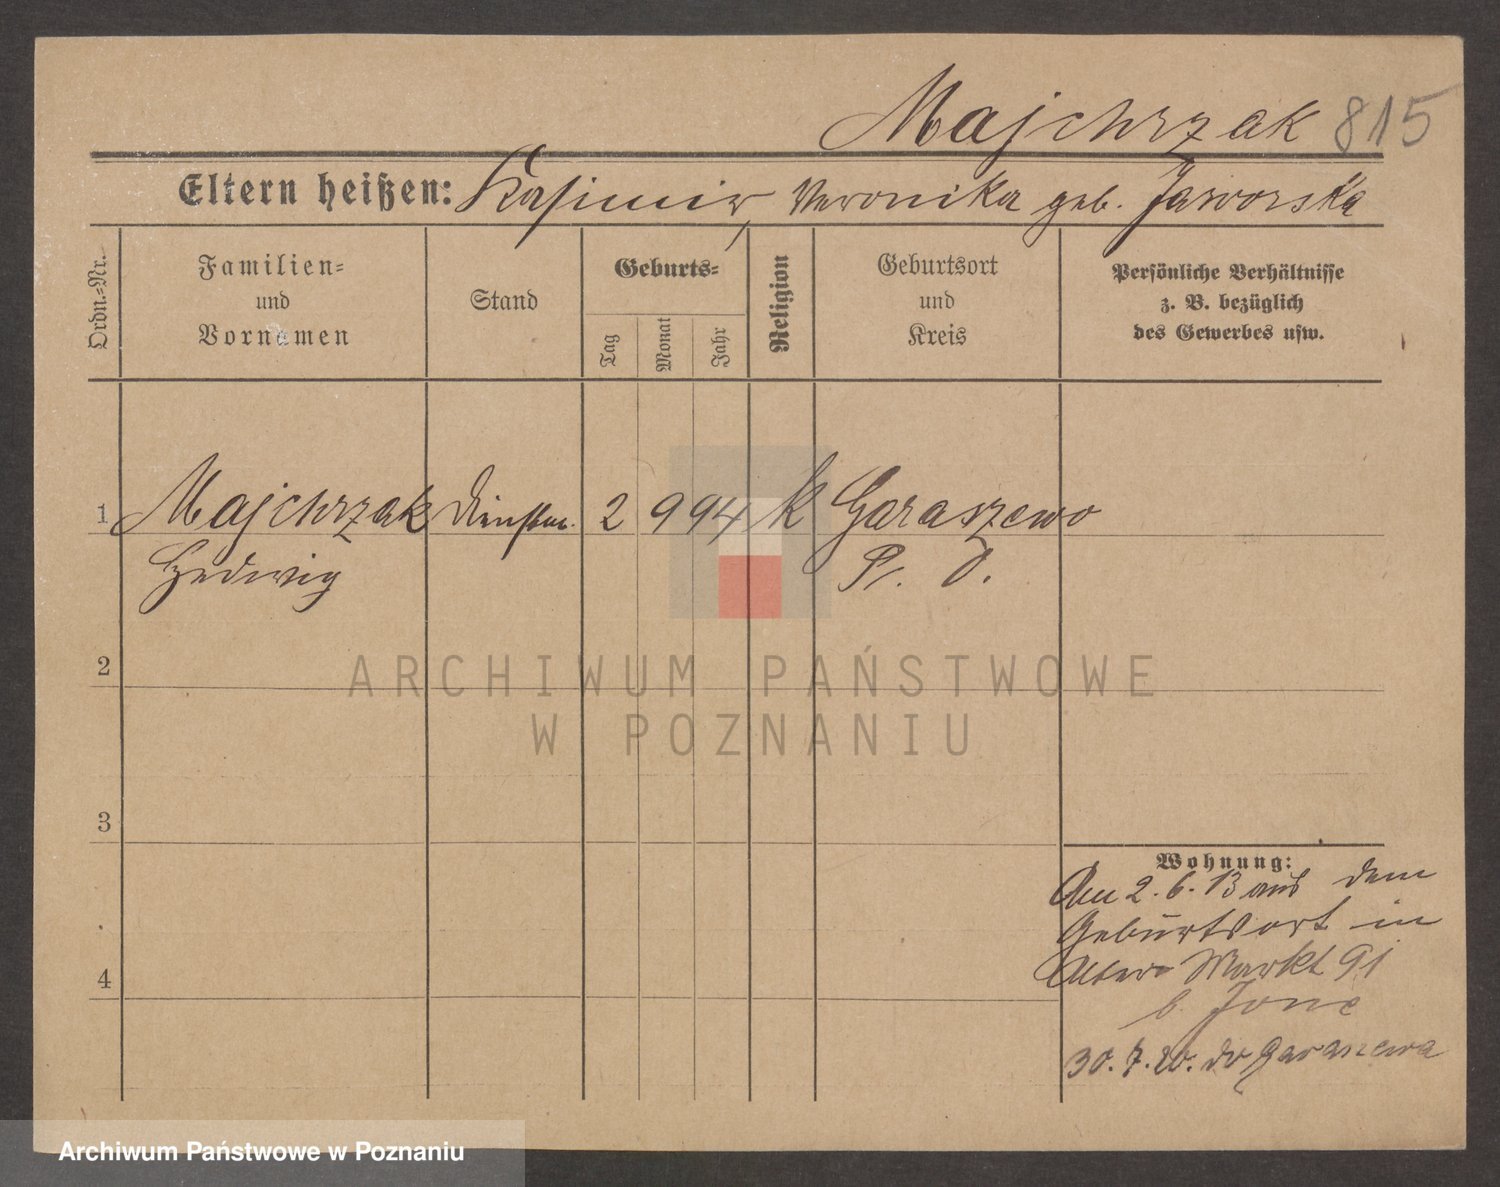 Majchrzak 815
Eltern heißen: Kasimir, Veronika geb. Jaworska
Ordn.-Nr.
Familien-
und
Vornamen
Stand
Geburts-
Tag
Monat
Jahr
Religion
Geburtsort
und
Kreis
Persönliche Verhältnisse
z. B. bezüglich
des Gewerbes usw.
1 Majchrzak Dienstm. 2 9 94 K Garaszewo
Hedwig Pr. O.
2
3
4
Wohnung:
Am 2.6.13 aus dem
Geburtsort in
Alter Markt 91
b.
30.7.20. do Garaszewa
ARCHIWUM PAŃSTWOWE
W POZNANIU
Archiwum Państwowe w Poznaniu